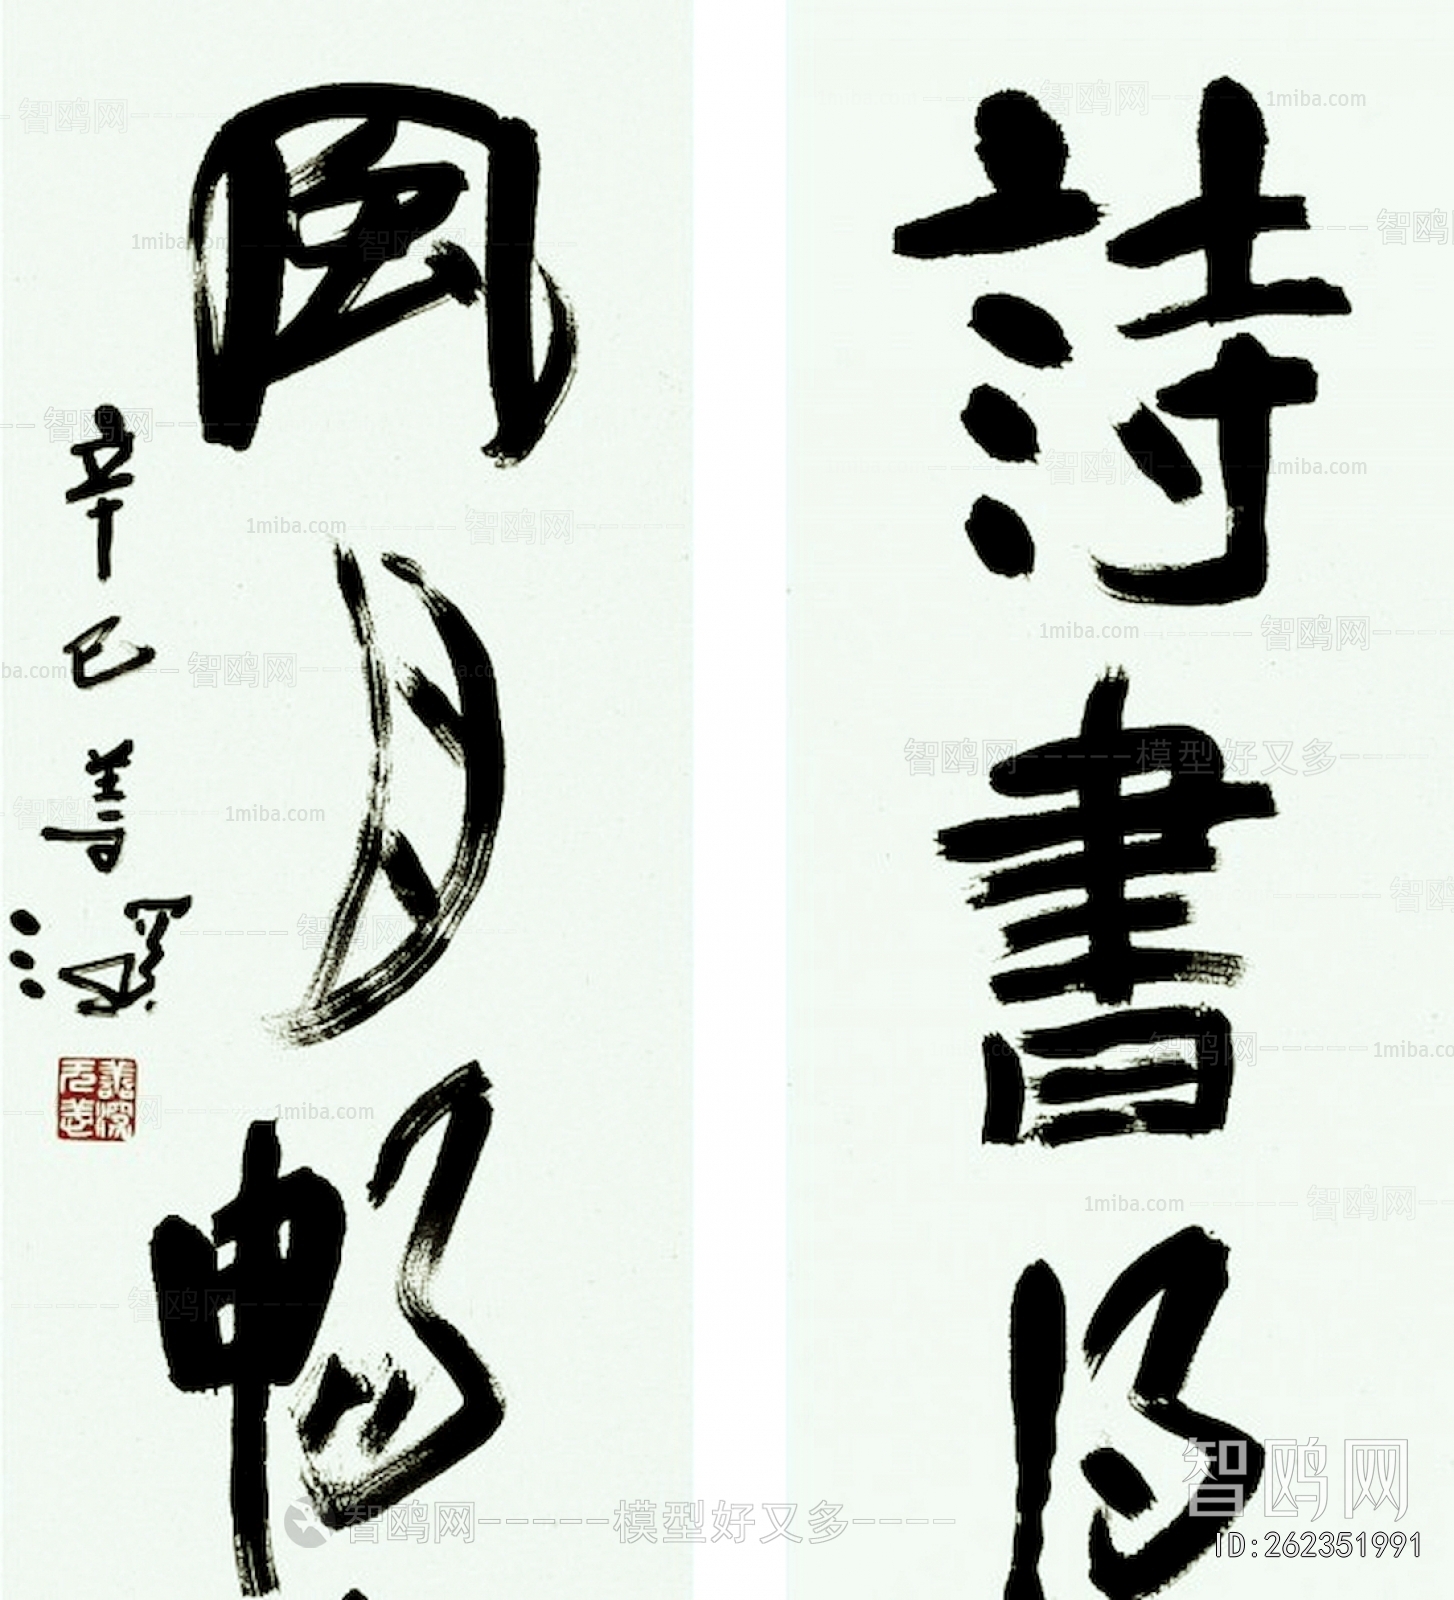 詩書得
風月暢
辛巳善深
1miba.com
智鸥网-----模型好又多----
智鸥网
ID:262351991